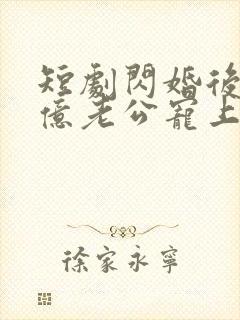 短劇閃婚後
億老公寵上
徐家永寧